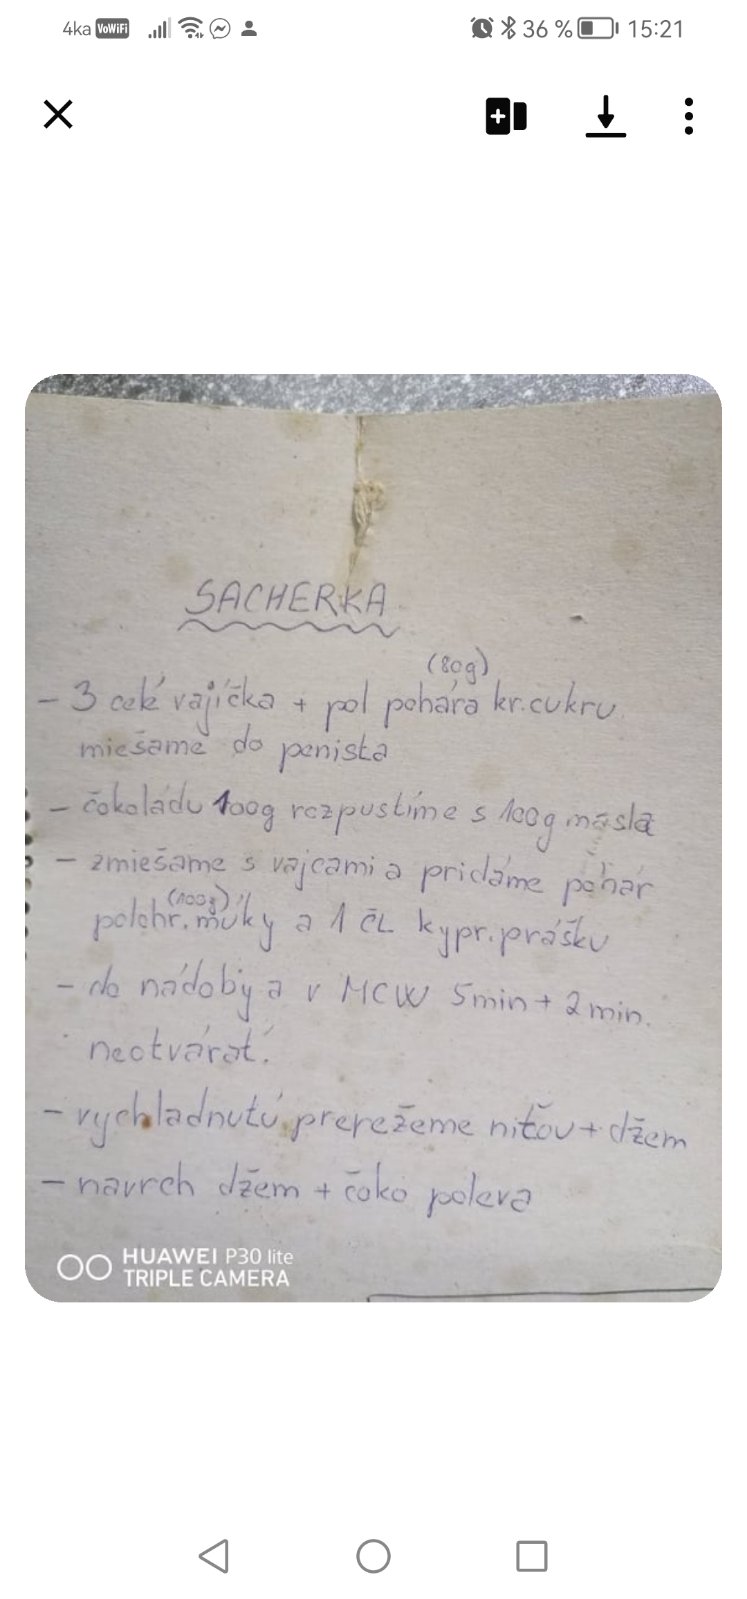 4ka VoWiFi 36 % 15:21
SACHERKA
(80g)
- 3 celé vajíčka + pol pohára kr.cukru
miešame do penista
- čokoládu 100g rozpustíme s 100g masla
- zmiešame s vajcami a pridáme pohár
(100g)
polohr. múky a 1 čL kypr.prášku
- do nádoby a v MCW 5min + 2 min.
neotvárať!
- vychladnutú prerežeme niťou + džem
- navrch džem + čoko poleva
HUAWEI P30 lite
TRIPLE CAMERA